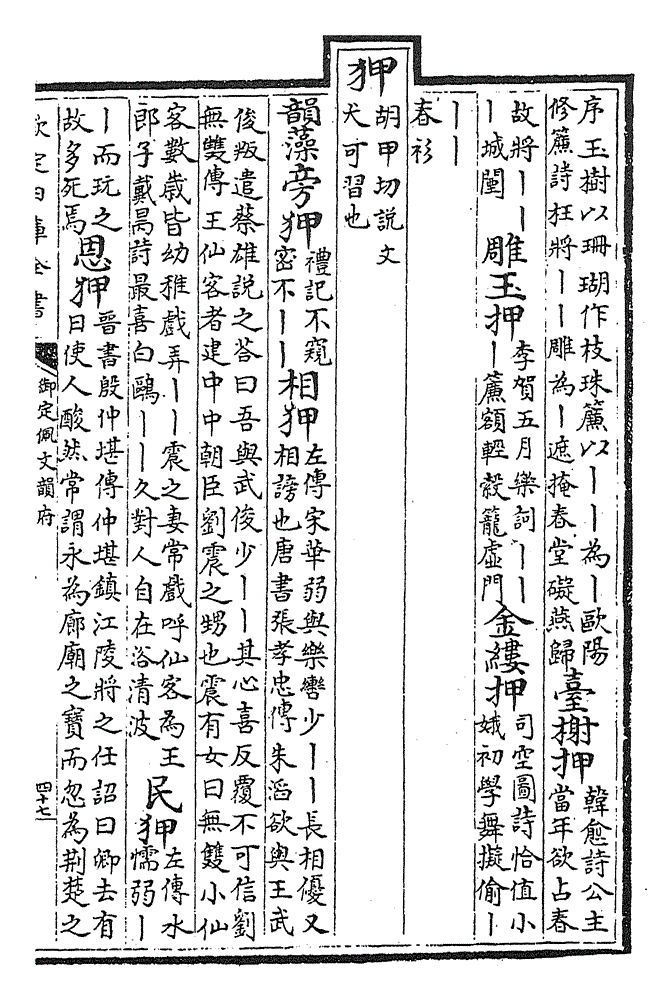 序玉樹以珊瑚作枝珠簾以丨丨為丨歐陽
修簾詩枉將丨丨雕為丨遮掩春堂礙燕歸
臺榭押
韓愈詩公主
當年欲占春
故將丨丨
丨城闉
雕玉押
李賀五月樂詞丨丨
丨簾額輕縠籠虛門
金縷押
司空圖詩恰值小
娥初學舞擬偷丨
丨丨
春衫
狎
胡甲切說文
犬可習也
韻藻旁狎
禮記不窺
密不丨丨
相狎
左傳宋華弱與樂轡少丨丨長相優又
相謗也唐書張孝忠傳朱滔欲與王武
俊叛遣蔡雄說之荅曰吾與武俊少丨丨其心喜反覆不可信劉
無雙傳王仙客者建中中朝臣劉震之甥也震有女曰無雙小仙
客數歲皆幼稚戲弄丨丨震之妻常戲呼仙客為王
郎子戴昺詩最喜白鷗丨丨久對人自在浴清波
民狎
左傳水
懦弱丨
丨而玩之
故多死焉
恩狎
晉書殷仲堪傳仲堪鎮江陵將之任詔曰卿去有
日使人酸然常謂永為廊廟之寶而忽為荊楚之
欽定四庫全書
御定佩文韻府
四十七